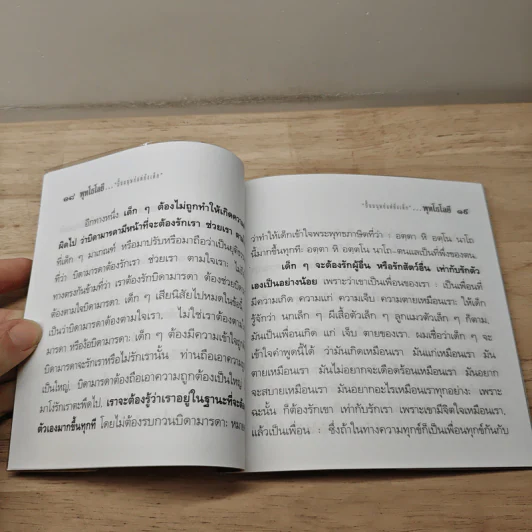 ๑๘ พุทโธโลยี ... "ขี้ขมขุดร่อยิ่งเด็ก"
อีกทางหนึ่ง เด็ก ๆ ต้องไม่ถูกทำให้เกิดความ
ผิดไป ว่าบิดามารดามีหน้าที่จะต้องรักเรา ช่วยเรา
ที่เด็ก ๆ มาเกณฑ์ หรือมาปรับหรือมาถือว่าเป็นยุติธรรม
ที่ว่า บิดามารดาต้องรักเรา ช่วยเรา ตามใจเรา; ไม่
ทางตรงกันข้ามที่ว่า เราต้องรักบิดามารดา ต้องช่วยบิดา
ต้องตามใจบิดามารดา เด็ก ๆ เสียนิสัยไปหมดในข้อนี้
เป็นว่าบิดามารดาต้องตามใจเรา, ไม่ใช่เราต้องตาม
มารดา หรือง้อบิดามารดา; เด็ก ๆ ต้องมีความเข้าใจ
บิดามารดาจะรักเราหรือไม่รักเรานั้น ท่านถือเอาความ
เป็นใหญ่, บิดามารดาต้องถือเอาความถูกต้องเป็นใหญ่
มาโง่รักเราตะพึดไป, เราจะต้องรู้ว่าเราอยู่ในฐานะที่จะต้อง
ตัวเองมากขึ้นทุกที โดยไม่ต้องรบกวนบิดามารดา:
... พุทโธโลยี ๑๙
ว่าทำให้เด็กเข้าใจพระพุทธภาษิตที่ว่า : อตฺตา หิ อตฺตโน นาโถ
นี้มากขึ้นทุกที: อตฺตา หิ อตฺตโน นาโถ-ตนแลเป็นที่พึ่งของตน.
เด็ก ๆ จะต้องรักผู้อื่น หรือรักสัตว์อื่น เท่ากับรักตัว
เองเป็นอย่างน้อย เพราะว่าเขาเป็นเพื่อนของเรา : เป็นเพื่อนที่
มีความเกิด ความแก่ ความเจ็บ ความตายเหมือนเรา; ให้เด็ก
รู้จักว่า นกเล็ก ๆ ผีเสื้อตัวเล็ก ๆ ลูกแมวตัวเล็ก ๆ ก็ตาม,
มันเป็นเพื่อนเกิด แก่ เจ็บ ตายของเรา, ผมเชื่อว่าเด็ก ๆ จะ
เข้าใจคำพูดนี้ได้ ว่ามันเกิดเหมือนเรา มันแก่เหมือนเรา มัน
ตายเหมือนเรา มันไม่อยากจะเดือดร้อนเหมือนเรา มันอยาก
จะสบายเหมือนเรา มันอยากอะไรเหมือนเราทุกอย่าง; เพราะ
ฉะนั้น ก็ต้องรักเขา เท่ากับรักเรา เพราะเขามีจิตใจเหมือนเรา,
แล้วเป็นเพื่อน : ซึ่งถ้าในทางความทุกข์ก็เป็นเพื่อนทุกข์กันกับ